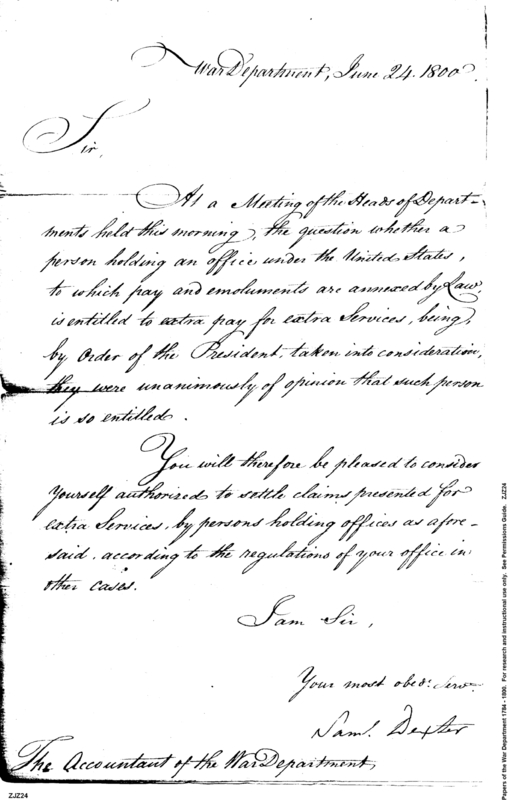 War Department, June 24. 1800.
Sir,
At a Meeting of the Heads of Depart-
ments held this morning, the question whether a
person holding an office under the United States,
to which pay and emoluments are annexed by Law,
is entitled to extra pay for extra Services, being,
by Order of the President, taken into consideration,
they were unanimously of opinion that such person
is so entitled.
You will therefore be pleased to consider
yourself authorized to settle claims presented for
extra Services, by persons holding offices as afore-
said, according to the regulations of your office in
other cases.
I am Sir,
Your most obed: Servt.
Saml. Dexter
The Accountant of the War Department,
ZJZ24
Papers of the War Department 1784 - 1800. For research and instructional use only. See Permissions Guide. ZJZ24